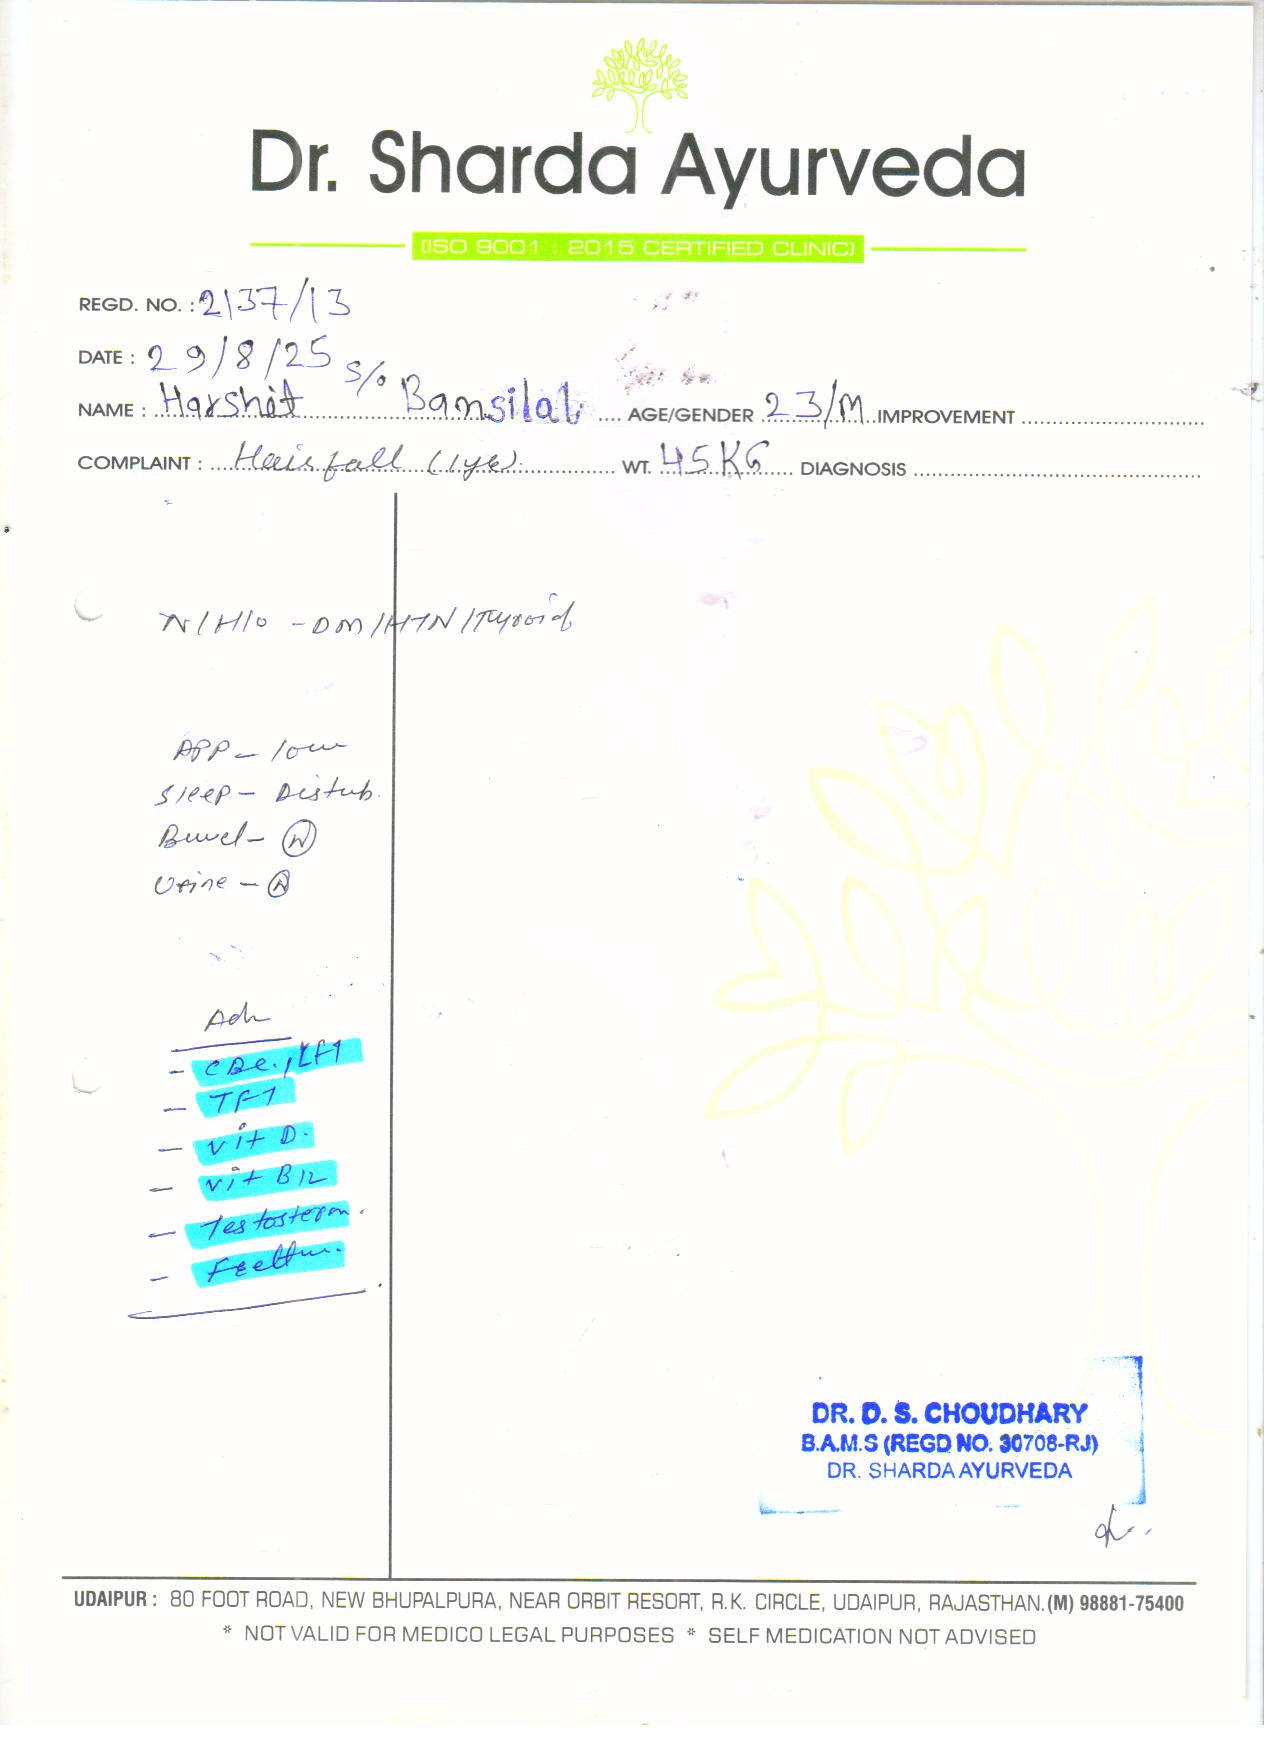 Dr. Sharda Ayurveda
(ISO 9001 : 2015 CERTIFIED CLINIC)
REGD. NO. : 2137/13
DATE : 29/8/25
NAME : Harshit S/o Bansilal AGE/GENDER 23/M IMPROVEMENT
COMPLAINT : Hairfall (1yr) WT. 45KG DIAGNOSIS
N/H/O - DM/HTN/Thyroid
APP - low
Sleep - Distub.
Bowel - N
Urine - N
Adv
- CBC, LFT
- TFT
- vit D.
- vit B12
- Testosteron.
DR. D. S. CHOUDHARY
B.A.M.S (REGD NO. 30708-RJ)
DR. SHARDA AYURVEDA
UDAIPUR : 80 FOOT ROAD, NEW BHUPALPURA, NEAR ORBIT RESORT, R.K. CIRCLE, UDAIPUR, RAJASTHAN. (M) 98881-75400
* NOT VALID FOR MEDICO LEGAL PURPOSES * SELF MEDICATION NOT ADVISED